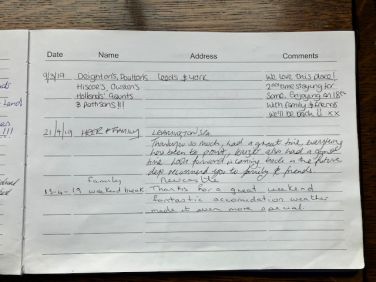 Date Name Address Comments
9/3/19 Deighton's, Poultons Leeds & York We love this place!
Hiscoe's, Owen's 2nd time staying for
Hollands' Gaunts some. Enjoying an 18th
& Partisans!!! with family & friends
We'll be back xx
21/4/19 & Family Leamington Spa
Thankyou so much, had a great time, everything
has been to point, also had a great
time. Look forward in coming back in the future
def recommend you to family & friends.
Family Newcastle
13-4-19 weekend break Thanks for a great weekend
fantastic accomodation weather
made it even more special.